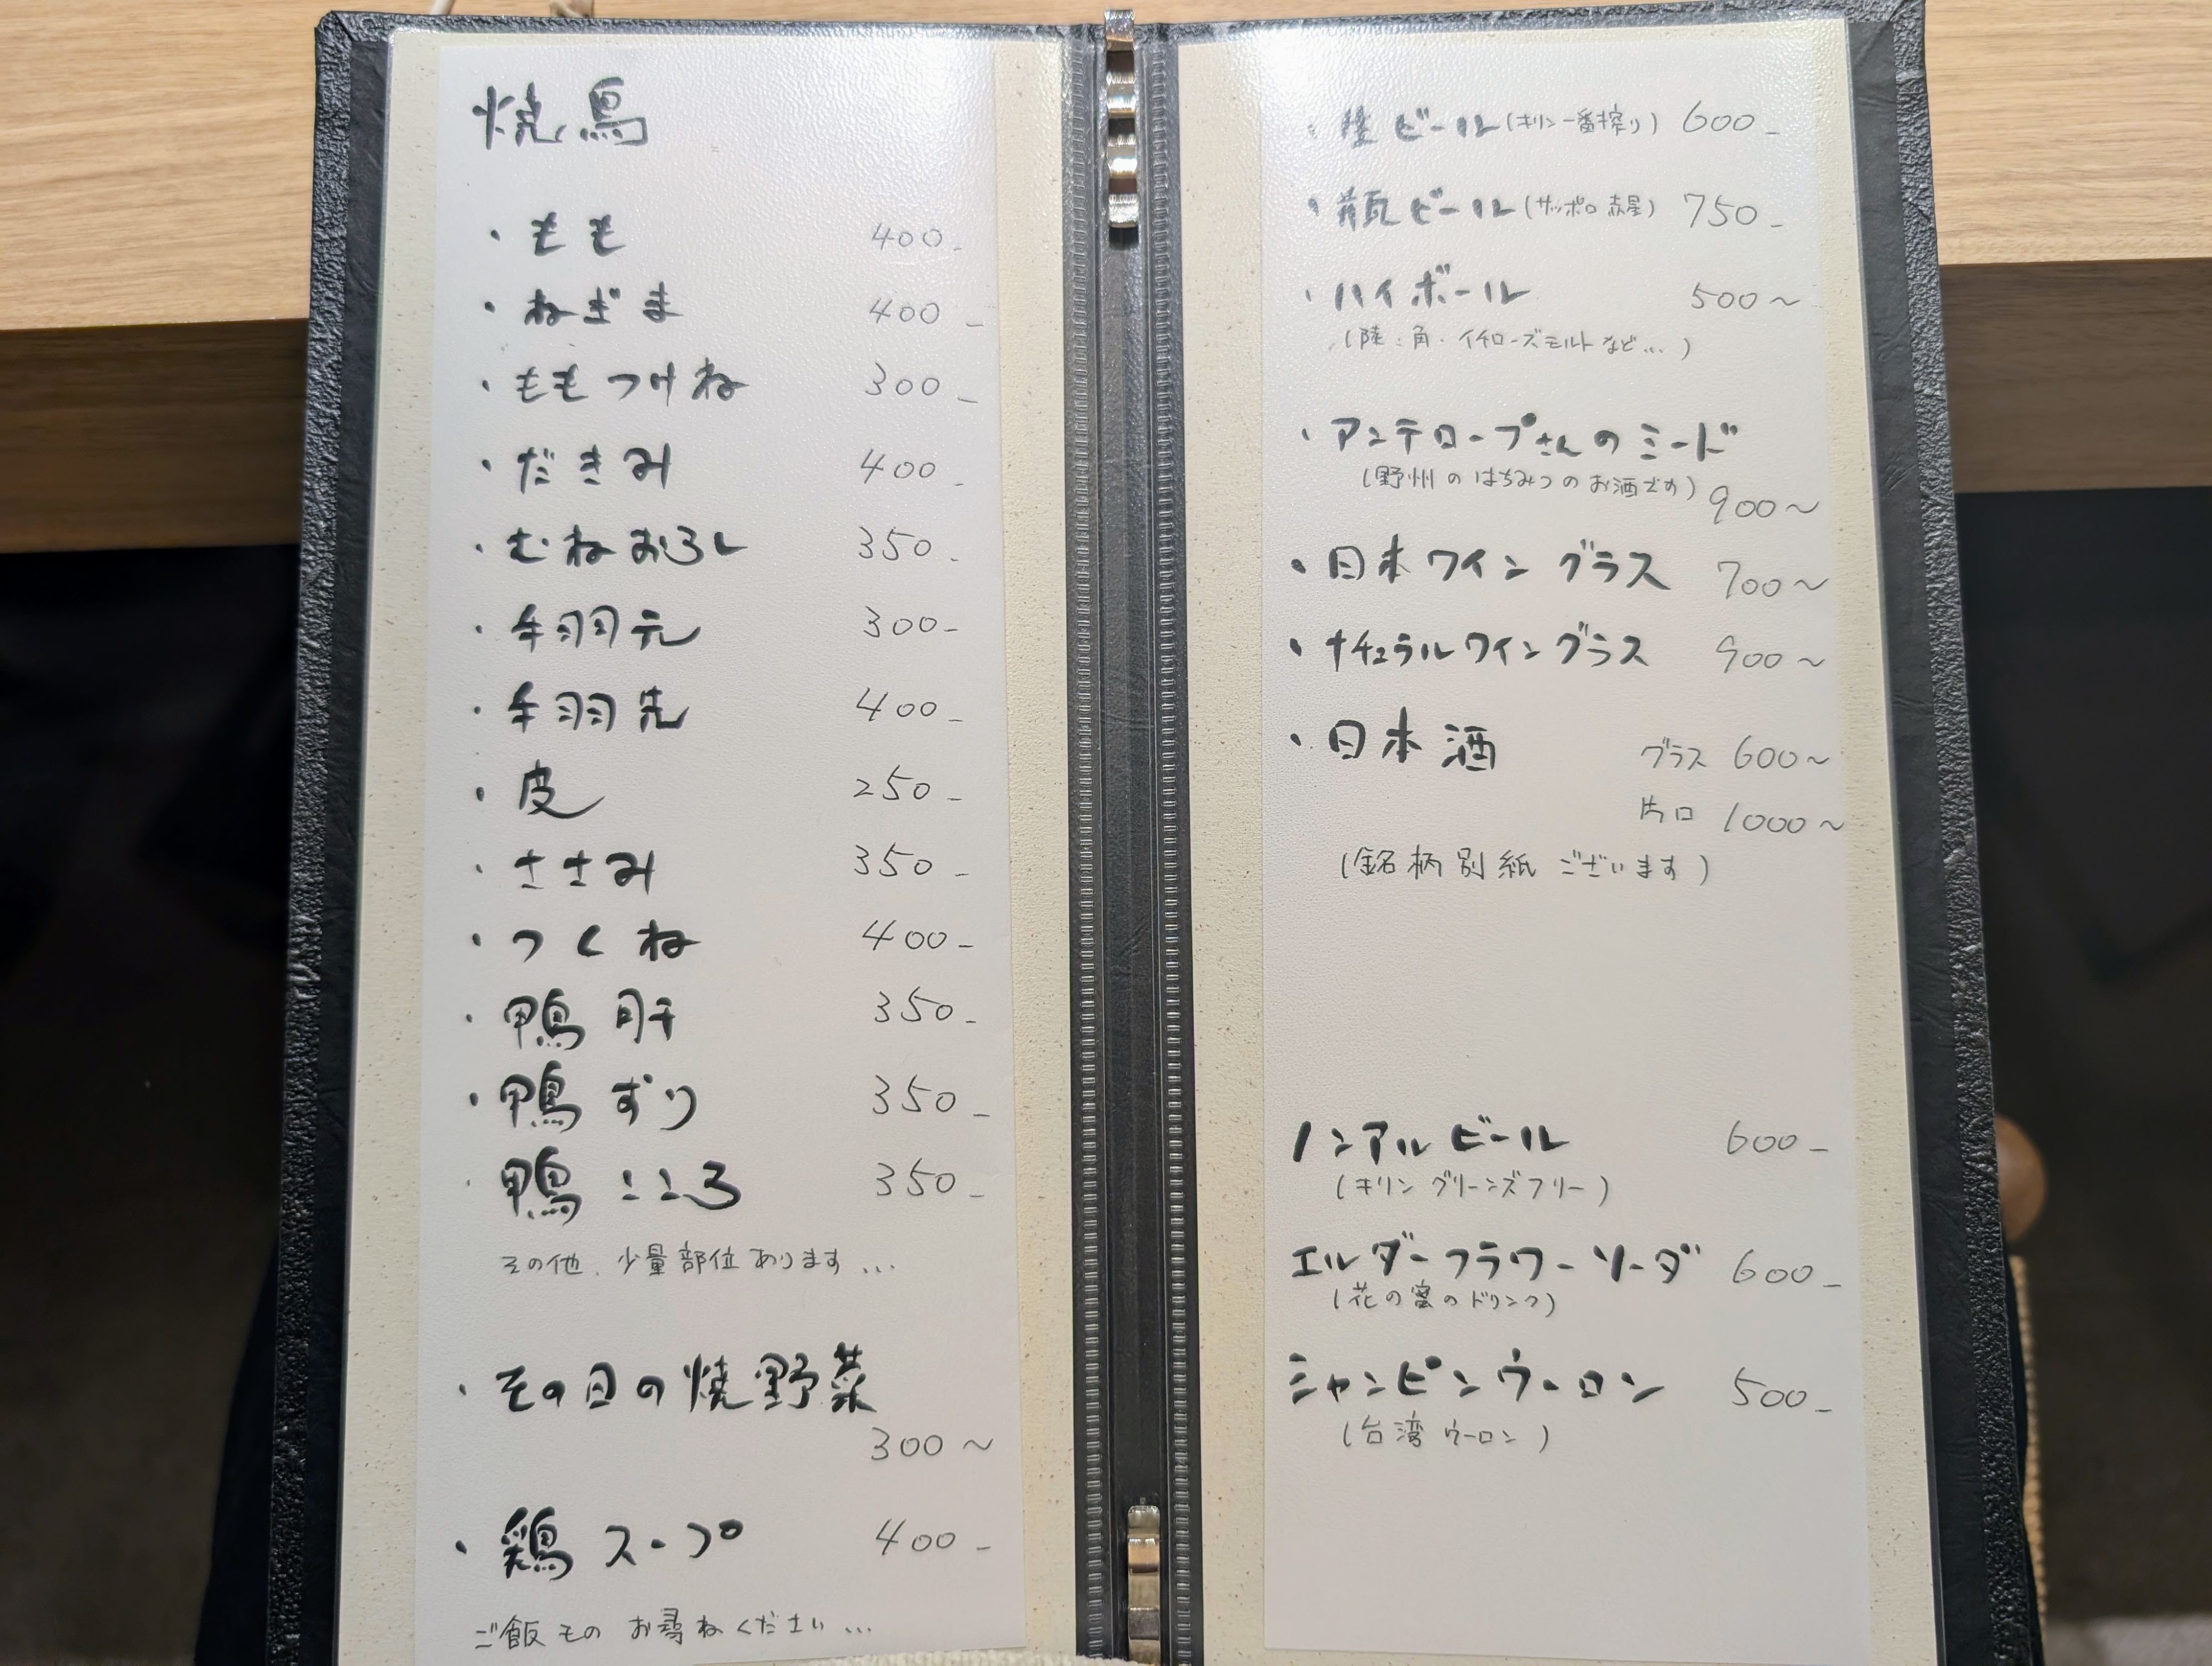 焼鳥
・もも 400-
・ねぎま 400-
・ももつけね 300-
・だきみ 400-
・むねおろし 350-
・手羽元 300-
・手羽先 400-
・皮 250-
・ささみ 350-
・つくね 400-
・鴨肝 350-
・鴨ずり 350-
・鴨こころ 350-
その他、少量部位あります...
・その日の焼野菜
300〜
・鶏スープ 400-
ご飯もの お尋ねください...
・生ビール(キリン一番搾り) 600-
・瓶ビール(サッポロ赤星) 750-
・ハイボール 500〜
(陸・角・イチローズモルトなど...)
・アンテロープさんのミード
(野州のはちみつのお酒です) 900〜
・日本ワイン グラス 700〜
・ナチュラルワイン グラス 900〜
・日本酒 グラス 600〜
片口 1000〜
(銘柄別紙ございます)
ノンアルビール 600-
(キリン グリーンズフリー)
エルダーフラワーソーダ 600-
(花の蜜のドリンク)
シャンピンウーロン 500-
(台湾ウーロン)